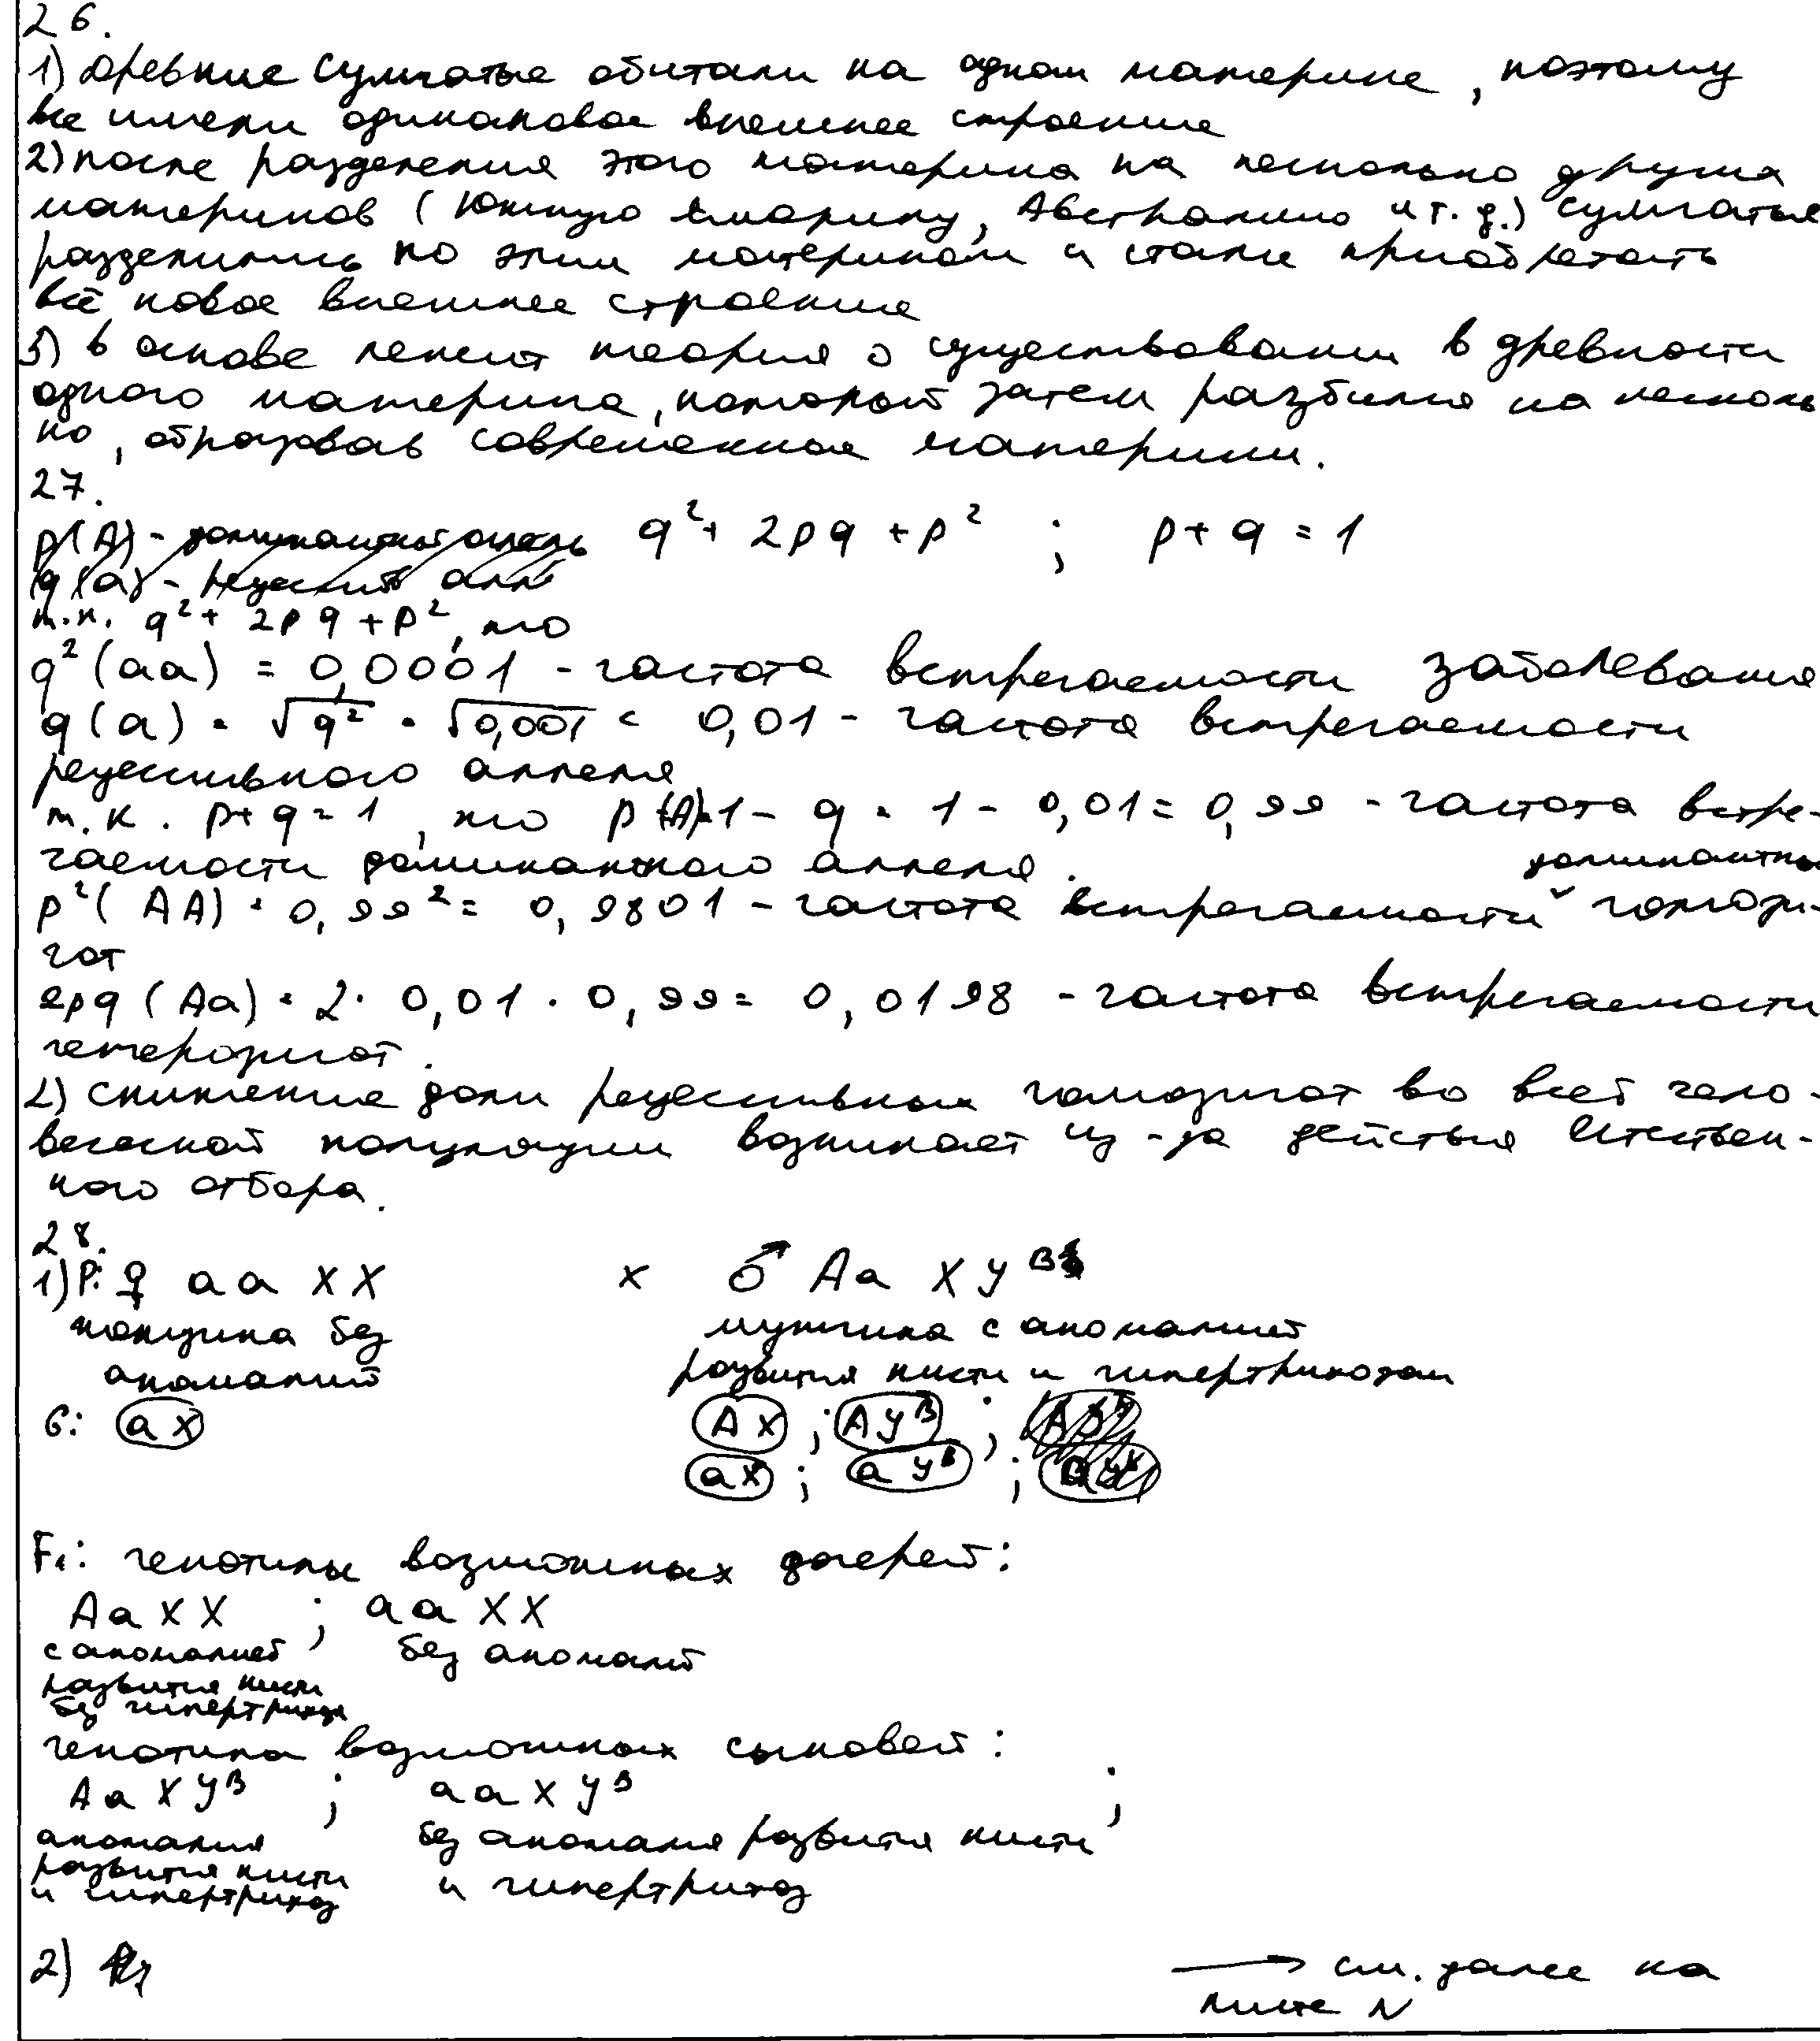 26.
1) Древние сумчатые обитали на одном материке, поэтому
все имели одинаковое внешнее строение
2) после разделения этого материка на несколько других
материков (Южную Америку, Австралию и т.д.) сумчатые
разделились по этим материкам и стали приобретать
всё новое внешнее строение
3) в основе лежит теория о существовании в древности
одного материка, который затем разбился на несколь
ко, образовав современные материки.
27.
q² + 2pq + p² ; p + q = 1
т.к. q² + 2pq + p², то
q² (aa) = 0,0001 - частота встречаемости заболевания
q (a) = √q² = √0,001 = 0,01 - частота встречаемости
рецессивного аллеля
т.к. p + q = 1, то p (A) = 1 - q = 1 - 0,01 = 0,99 - частота встре-
чаемости доминантного аллеля.
доминантных
p² (AA) = 0,99² = 0,9801 - частота встречаемости гомози-
гот
2pq (Aa) = 2 · 0,01 · 0,99 = 0,0198 - частота встречаемости
гетерозигот.
2) снижение доли рецессивных гомозигот во всей чело-
веческой популяции возникает из-за действия естествен-
ного отбора.
28.
1) P: ♀ aa XX x ♂ Aa XY^B
женщина без мужчина с аномалией
аномалий развития кисти и гипертрихозом
G: aX AX ; AY^B ;
aX ; aY^B ;
F₁: генотипы возможных дочерей:
Aa XX ; aa XX
с аномалией без аномалий
развития кисти
без гипертрихоза
генотипы возможных сыновей:
Aa XY^B ; aa XY^B ;
аномалия без аномалия развития кисти
развития кисти и гипертрихоз
и гипертрихоз
2)
→ см. далее на
листе N